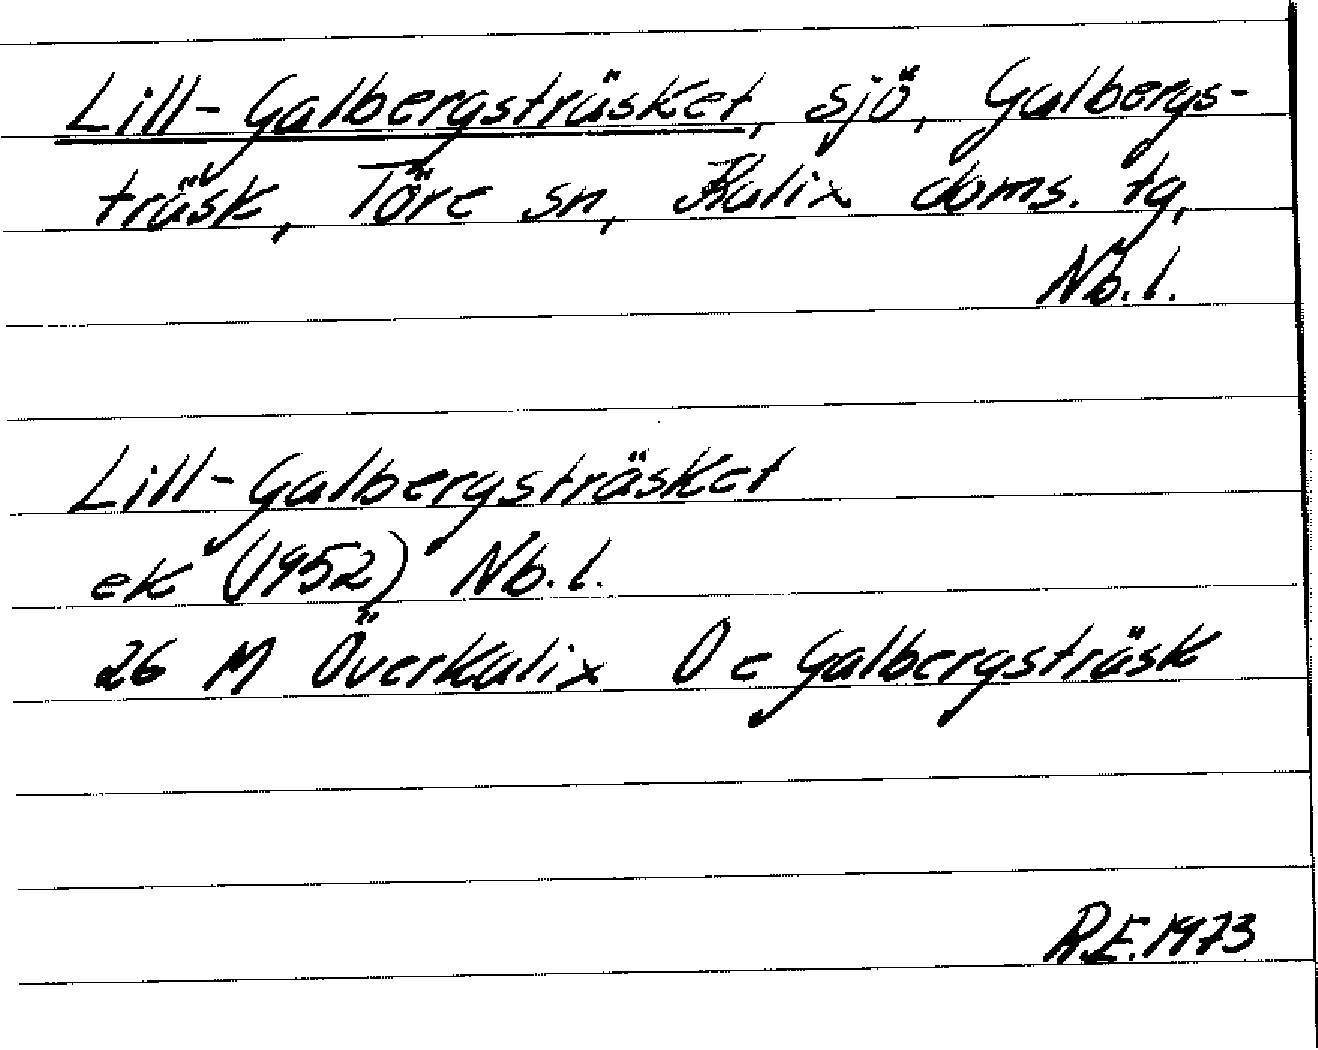 Lill-Galbergsträsket, sjö, Galbergs-
träsk, Töre sn, Kalix doms. tg,
Nb.l.
Lill-Galbergsträsket
ek (1952) Nb.l.
26 M Överkalix O e Galbergsträsk
R.E.1973